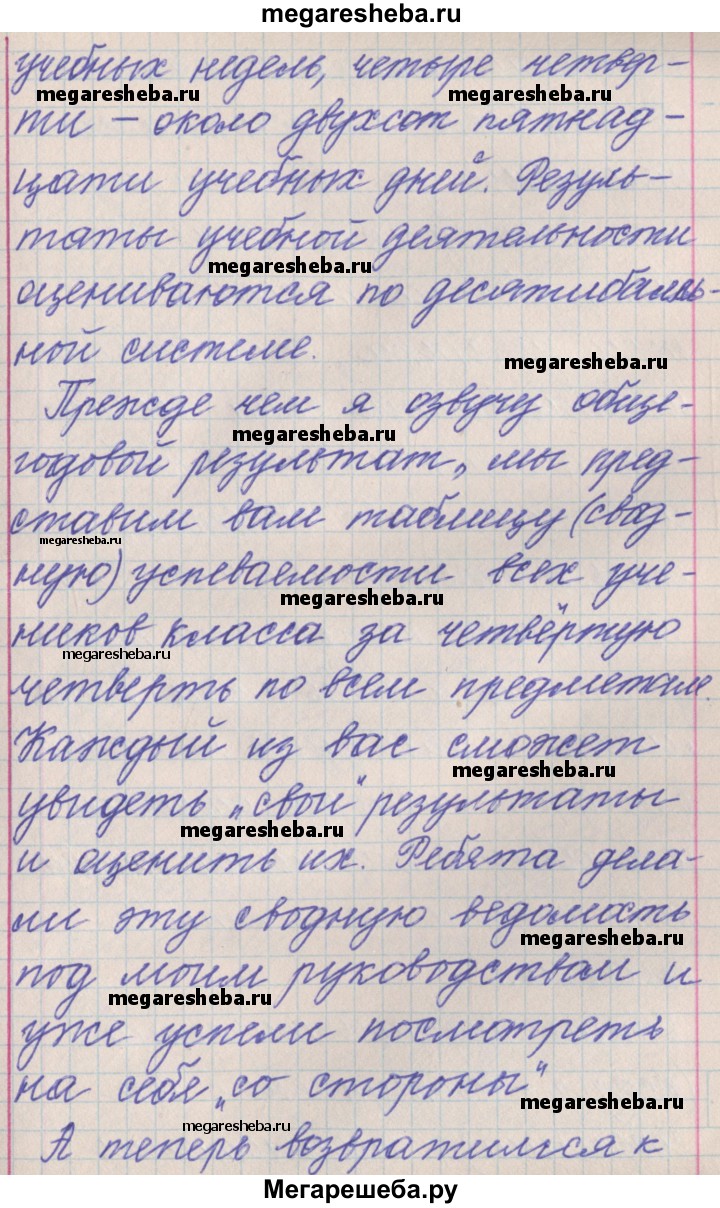 megaresheba.ru
учебных недель, четыре четвер-
megaresheba.ru megaresheba.ru
ти – около двухсот пятнад-
цати учебных дней. Резуль-
таты учебной деятельности
megaresheba.ru
оцениваются по десятибалль-
ной системе.
megaresheba.ru
Прежде чем я озвучу обще-
megaresheba.ru
годовой результат, мы пред-
ставим вам таблицу (свод-
megaresheba.ru
ную) успеваемости всех уче-
megaresheba.ru
ников класса за четвёртую
megaresheba.ru
четверть по всем предметам.
Каждый из вас сможет
megaresheba.ru
увидеть „свои“ результаты
megaresheba.ru
и оценить их. Ребята дела-
ли эту сводную ведомость
megaresheba.ru
под моим руководством и
megaresheba.ru
уже успели посмотреть
на себя „со стороны“
megaresheba.ru
megaresheba.ru
А теперь возвратимся к
Мегарешеба.ру